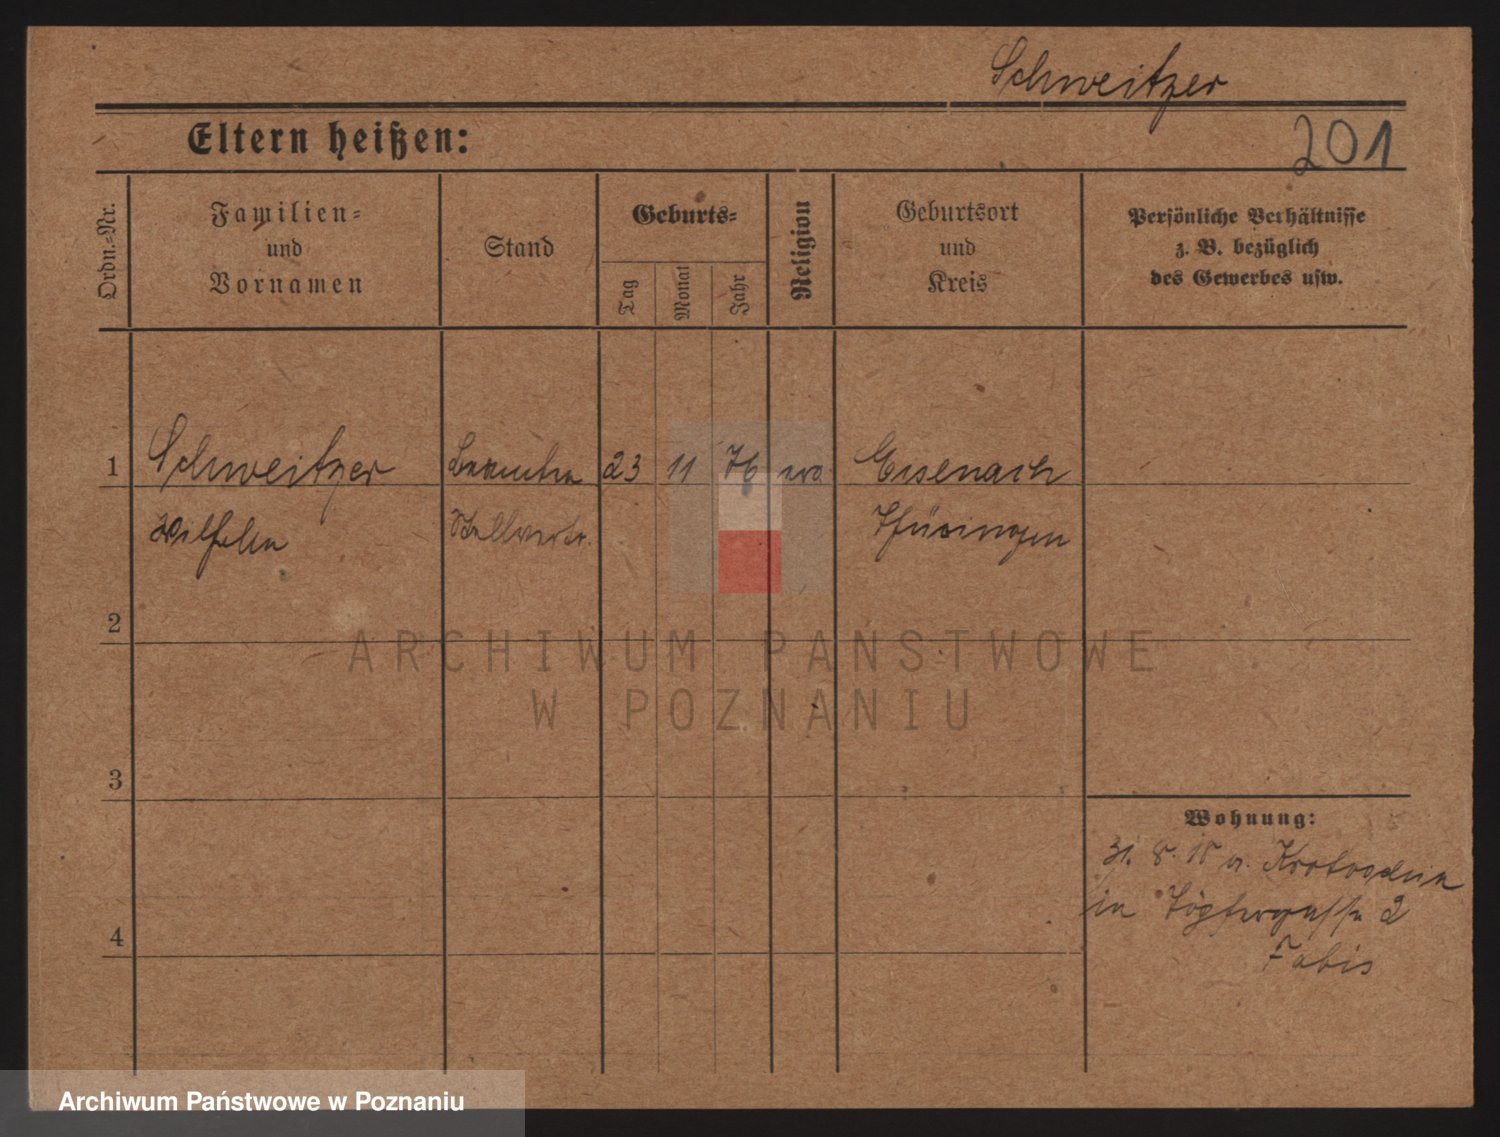 Schweitzer
Eltern heißen:
201
Ordn.=Nr.
Familien=
und
Vornamen
Stand
Geburts=
Tag
Monat
Jahr
Religion
Geburtsort
und
Kreis
Persönliche Verhältnisse
z. B. bezüglich
des Gewerbes usw.
1
Schweitzer
23
11
76
Eisenach
Wilhelm
Stellvertr.
Thüringen
2
ARCHIWUM PAŃSTWOWE
W POZNANIU
3
Wohnung:
31. 8. 18 a. Krotoschin
in Töpfergasse 2
Fabis
4
Archiwum Państwowe w Poznaniu